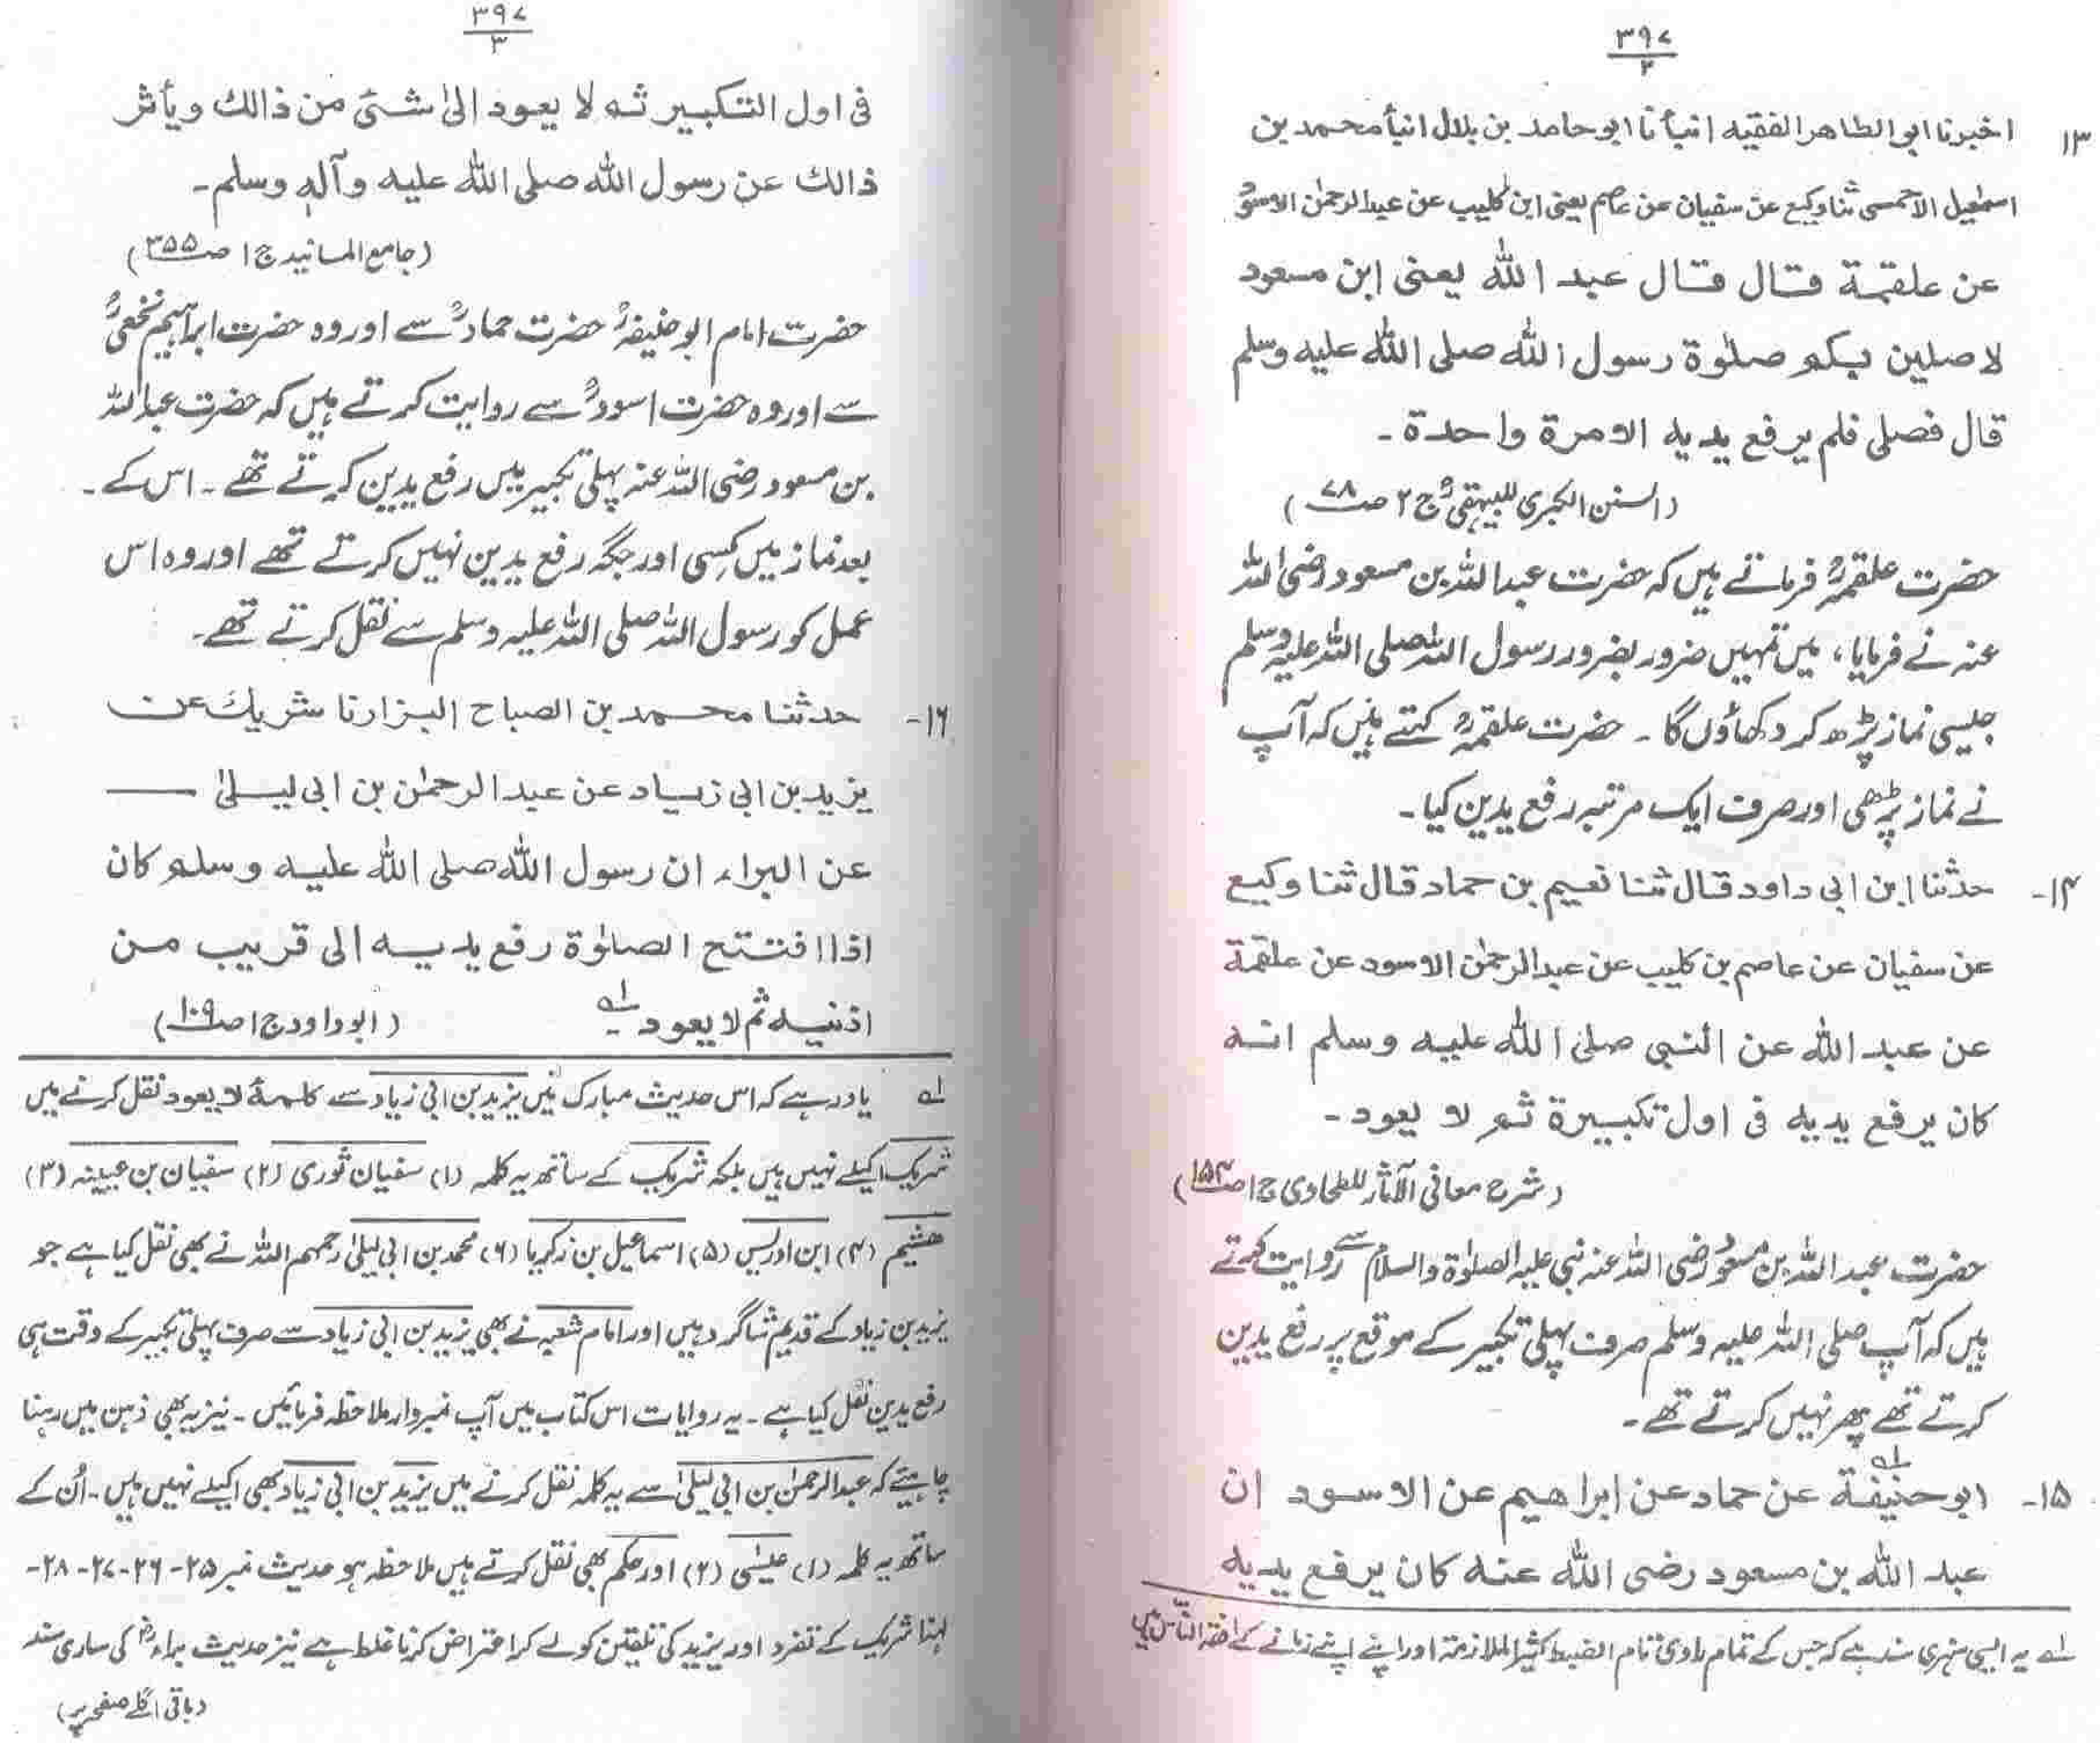 ۳۹۷
۲
۱۳ اخبرنا ابو الطاهر الفقیه انبأنا ابو حامد بن بلال انبأ محمد بن
اسمٰعیل الاحمسی ثنا وکیع عن سفیان عن عاصم یعنی ابن کلیب عن عبد الرحمٰن الاسود
عن علقمة قال قال عبد الله یعنی ابن مسعود
لاصلین بکم صلوٰة رسول الله صلی الله علیه وسلم
قال فصلی فلم یرفع یدیه الا مرة واحدة ۔
(السنن الکبری للبیہقیؒ ج ۲ ص ۷۸)
حضرت علقمہؒ فرماتے ہیں کہ حضرت عبداللہ بن مسعود رضی اللہ
عنہ نے فرمایا، میں تمہیں ضرور بضرور رسول اللہ صلی اللہ علیہ وسلم
جیسی نماز پڑھ کر دکھاؤں گا ۔ حضرت علقمہؒ کہتے ہیں کہ آپ
نے نماز پڑھی اور صرف ایک مرتبہ رفع یدین کیا ۔
۱۴- حدثنا ابن ابی داود قال ثنا نعیم بن حماد قال ثنا وکیع
عن سفیان عن عاصم بن کلیب عن عبد الرحمٰن الاسود عن علقمة
عن عبد الله عن النبی صلی الله علیه وسلم انه
کان یرفع یدیه فی اول تکبیرة ثم لا یعود ۔
(شرح معانی الآثار للطحاوی ج۱ ص۱۵۴)
حضرت عبداللہ بن مسعودؓ رضی اللہ عنہ نبی علیہ الصلوٰة والسلام سے روایت کرتے
ہیں کہ آپ صلی اللہ علیہ وسلم صرف پہلی تکبیر کے موقع پر رفع یدین
کرتے تھے پھر نہیں کرتے تھے ۔
۱۵- ابو حنیفة لہ عن حماد عن ابراهیم عن الاسود ان
عبد الله بن مسعود رضی الله عنه کان یرفع یدیه
لہ یہ ایسی سنہری سند ہے کہ جس کے تمام راوی تام الضبط کثیر الملازمتہ اور اپنے اپنے زمانے کے افقہ الناس ہیں
۳۹۷
۳
فی اول التکبیر ثم لا یعود الیٰ شئ من ذالك ویأثر
ذالك عن رسول الله صلی الله علیه وآله وسلم ۔
(جامع المسانید ج ۱ ص ۳۵۵)
حضرت امام ابو حنیفہؒ حضرت حمادؒ سے اور وہ حضرت ابراہیم نخعیؒ
سے اور وہ حضرت اسودؒ سے روایت کرتے ہیں کہ حضرت عبداللہ
بن مسعود رضی اللہ عنہ پہلی تکبیر میں رفع یدین کرتے تھے ۔ اس کے ۔
بعد نماز میں کسی اور جگہ رفع یدین نہیں کرتے تھے اور وہ اس
عمل کو رسول اللہ صلی اللہ علیہ وسلم سے نقل کرتے تھے ۔
۱۶- حدثنا محمد بن الصباح البزار نا شریك عن
یزید بن ابی زیاد عن عبد الرحمٰن بن ابی لیلیٰ
عن البراء ان رسول الله صلی الله علیه وسلم کان
اذا افتتح الصلوٰة رفع یدیه الی قریب من
اذنیه ثم لا یعود ۔ لہ (ابو داود ج۱ ص۱۰۹)
لہ یاد رہے کہ اس حدیث مبارک میں یزید بن ابی زیاد سے کلمۂ لا یعود نقل کرنے میں
شریک اکیلے نہیں ہیں بلکہ شریک کے ساتھ یہ کلمہ (۱) سفیان ثوری (۲) سفیان بن عیینہ (۳)
ھشیم (۴) ابن ادریس (۵) اسماعیل بن زکریا (۶) محمد بن ابی لیلیٰ رحمہم اللہ نے بھی نقل کیا ہے جو
یزید بن زیاد کے قدیم شاگرد ہیں اور امام شعبہ نے بھی یزید بن ابی زیاد سے صرف پہلی تکبیر کے وقت ہی
رفع یدین نقل کیا ہے ۔ یہ روایات اس کتاب میں آپ نمبر وار ملاحظہ فرمائیں ۔ نیز یہ بھی ذہن میں رہنا
چاہیئے کہ عبدالرحمٰن بن ابی لیلیٰ سے یہ کلمہ نقل کرنے میں یزید بن ابی زیاد بھی اکیلے نہیں ہیں ۔ اُن کے
ساتھ یہ کلمہ (۱) عیسٰی (۲) اور حکم بھی نقل کرتے ہیں ملاحظہ ہو حدیث نمبر ۲۵-۲۶-۲۷-۲۸-
لہذا شریک کے تفرد اور یزید کی تلقین کو لے کر اعتراض کرنا غلط ہے نیز حدیث براءؓ کی ساری سند
(باقی اگلے صفحہ پر)